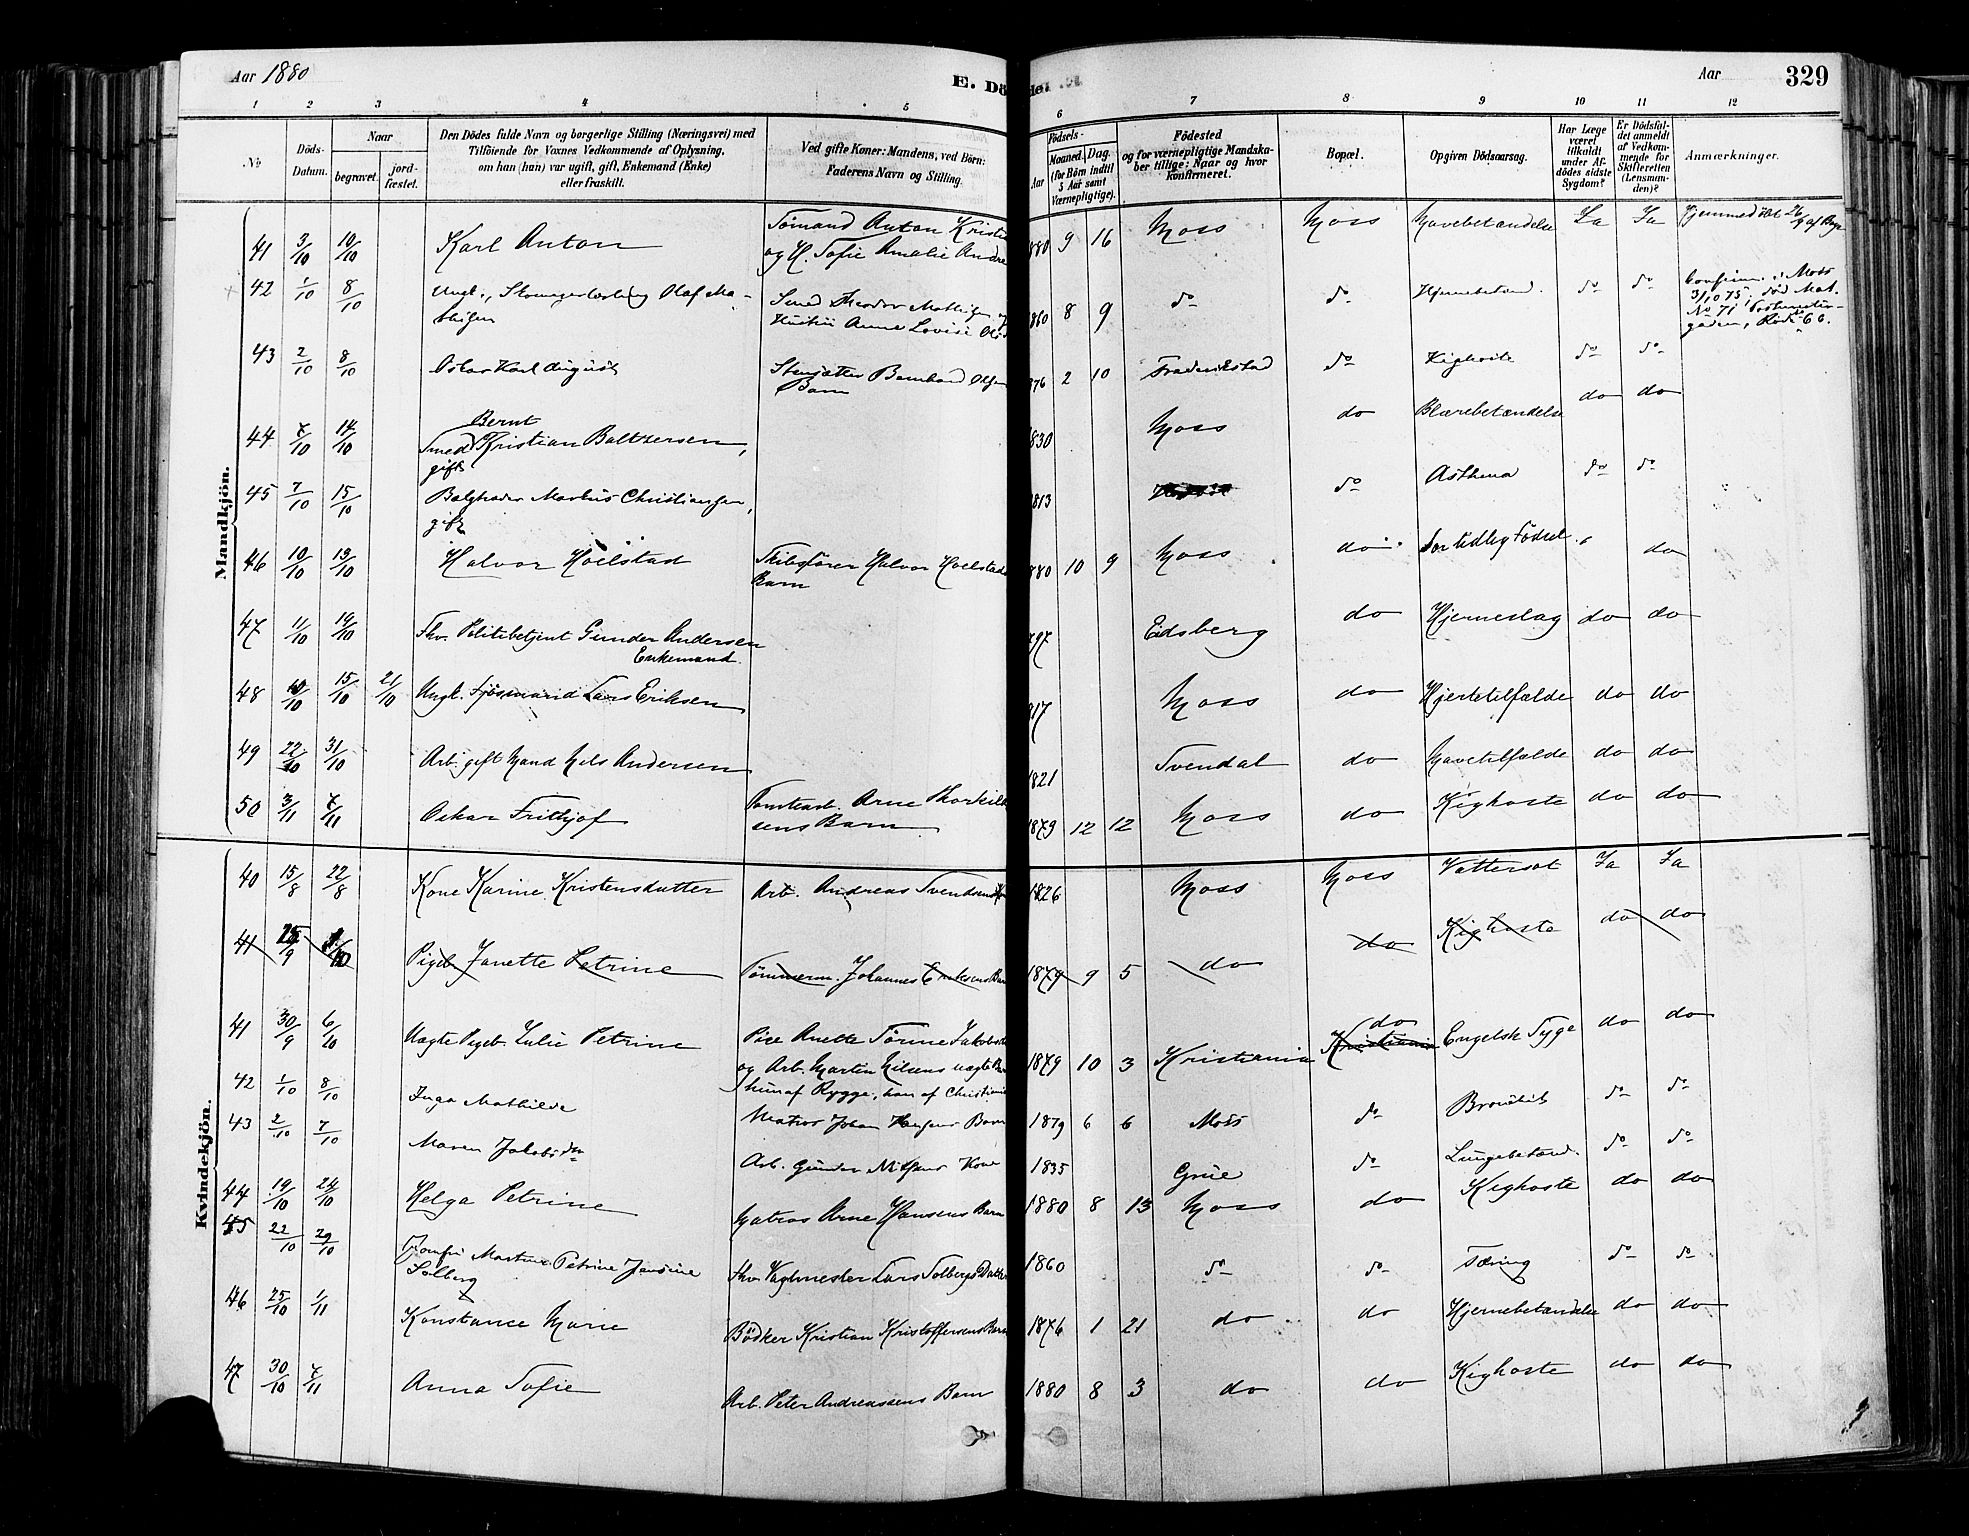 Aar 1880
E. Dö
Aar 329
1 2 3 4 5 6 7 8 9 10 11 12
No
Döds-Datum.
Naar
begravet.
jord-fæstet.
Den Dödes fulde Navn og borgerlige Stilling (Næringsvei) med
Tilföiende for Voxnes Vedkommende af Oplysning,
om han (hun) var ugift, gift, Enkemand (Enke)
eller fraskilt.
Ved gifte Koner: Mandens, ved Börn:
Faderens Navn og Stilling.
Födsels-
Aar
Maaned. Dag.
(for Börn indtil
5 Aar samt
Værnepligtige).
Födested
og for værnepligtige Mandska-
ber tillige: Naar og hvor
konfirmeret.
Bopæl.
Opgiven Dödsaarsag.
Har Læge
været
tilkaldt
under Af-
dödes sidste
Sygdom?
Er Dödsfal-
det anmeldt
af Vedkom-
mende for
Skifteretten
(Lensman-
den)?
Anmærkninger.
Mandkjön.
41 3/10 10/10 Karl Anton Sømand Anton Kristi
og H. Sofie Amalie Andre 880 9 16 Moss Moss Mavebetændelse Ja Ja Hjemmedöbt 26/9
42 1/10 8/10 Ungk., Olaf Ma-
thisen Smed Theodor Mathisen og
Hustru Anne Lovise 860 8 9 do do Hjernebetænd. do do Confirm. i Moss
3/10 75, död Mat.
No 71
43 2/10 8/10 Oskar Karl August Bernhard Olsen
Barn 876 2 10 Frederikstad do Kighoste do do
44 7/10 14/10 Bernt
Smed Kristian Baltzersen,
gift 1830 Moss do Blærebetændelse do do
45 7/10 15/10 Markus Christiansen,
gift 1813 do Asthma do do
46 10/10 13/10 Halvor Hoelstad Skibsfører Halvor Hoelstads
Barn 880 10 9 Moss do For tidlig Födsel " do
47 11/10 19/10 Fhv. Politibetjent Gunder Andersen
Enkemand. 797 Eidsberg do Hjerneslag do do
48 10/10 15/10 21/10 Ungk. Sjömand Lars Eriksen 817 Moss do Hjertetilfælde do do
49 22/10 31/10 Arb. gift Mand Nils Andersen 1821 Svendal do Mavetilfælde do do
50 3/11 7/11 Oskar Frithjof Tomtearb. Arne Thorkild
sens Barn 1879 12 12 Moss do Kighoste do do
Kvindekjön.
40 15/8 22/8 Kone Karine Kristensdatter Arb. Andreas Svendsens 1826 Moss Moss Vattersot Ja Ja
41 25/9 1/10 Pigeb. Janette Petrine Tømmerm. Johannes Eriksens Bar 1879 9 5 do do Kighoste do do
41 30/9 6/10 Uægte Pigeb. Julie Petrine Pige Anette Sørine Jakobsd
og Arb. Martin Nilsens uægte
hun af Rygge, han af Christiania 1879 10 3 Kristiania do
Kristiania Engelsk Syge do do
42 1/10 8/10 Inga Mathilde Matros Johan Hansens Barn 1879 6 6 Moss do Bronchit do do
43 2/10 7/10 Maren Jakobsdtr Arb. Gunder Nilsens Kone 1835 Grue do Lungebetænd. do do
44 19/10 24/10 Helga Petrine Matros Arne Hansens Barn 1880 8 13 Moss do Kighoste do do
45 22/10 29/10 Jomfru Martine Petrine Jensine
Solberg Fhv. Vagtmester Lars Solbergs Datter 1860 do do Tæring do do
46 25/10 1/11 Konstance Marie Bödker Kristian Kristoffersens Barn 1876 1 21 do do Hjernebetændelse do do
47 30/10 7/11 Anna Sofie Arb. Peter Andreassens Barn 1880 8 3 do do Kighoste do do